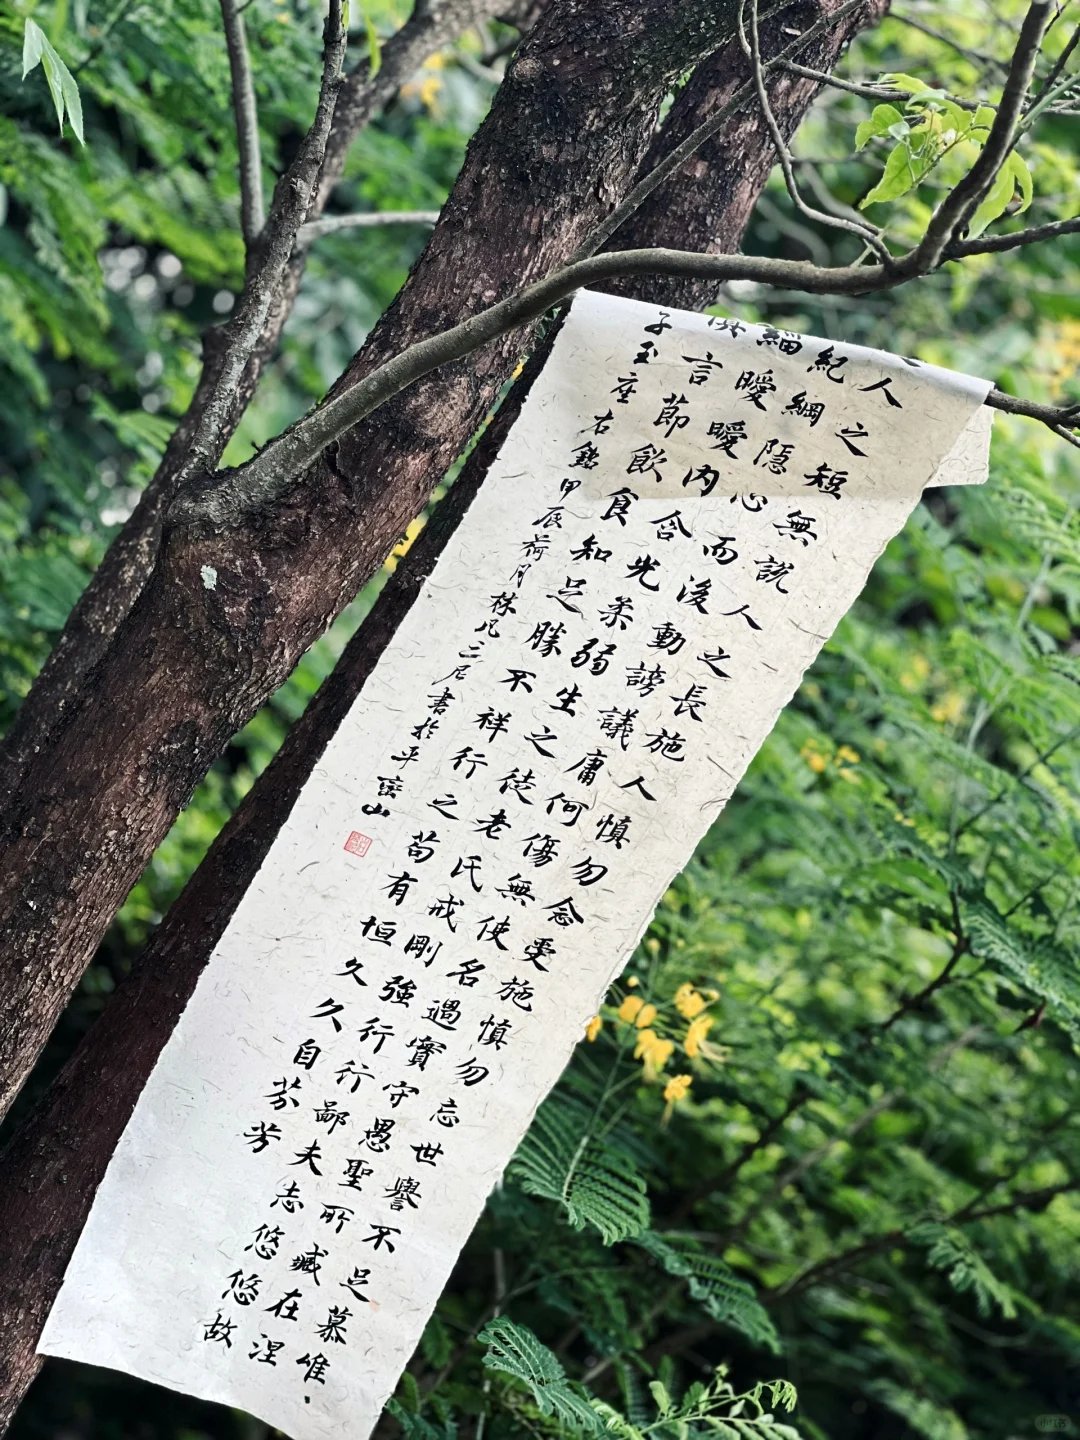 人之短無說人之長施人慎勿念受施慎勿忘世譽不足慕唯
紀綱隱心而後動謗議庸何傷無使名過實守愚聖所臧在涅
緇曖曖內含光柔弱生之徒老氏戒剛強行行鄙夫志悠悠故
言節飲食知足勝不祥行之苟有恒久久自芬芳
子玉座右銘甲辰荷月林凡三尼書於平巒山